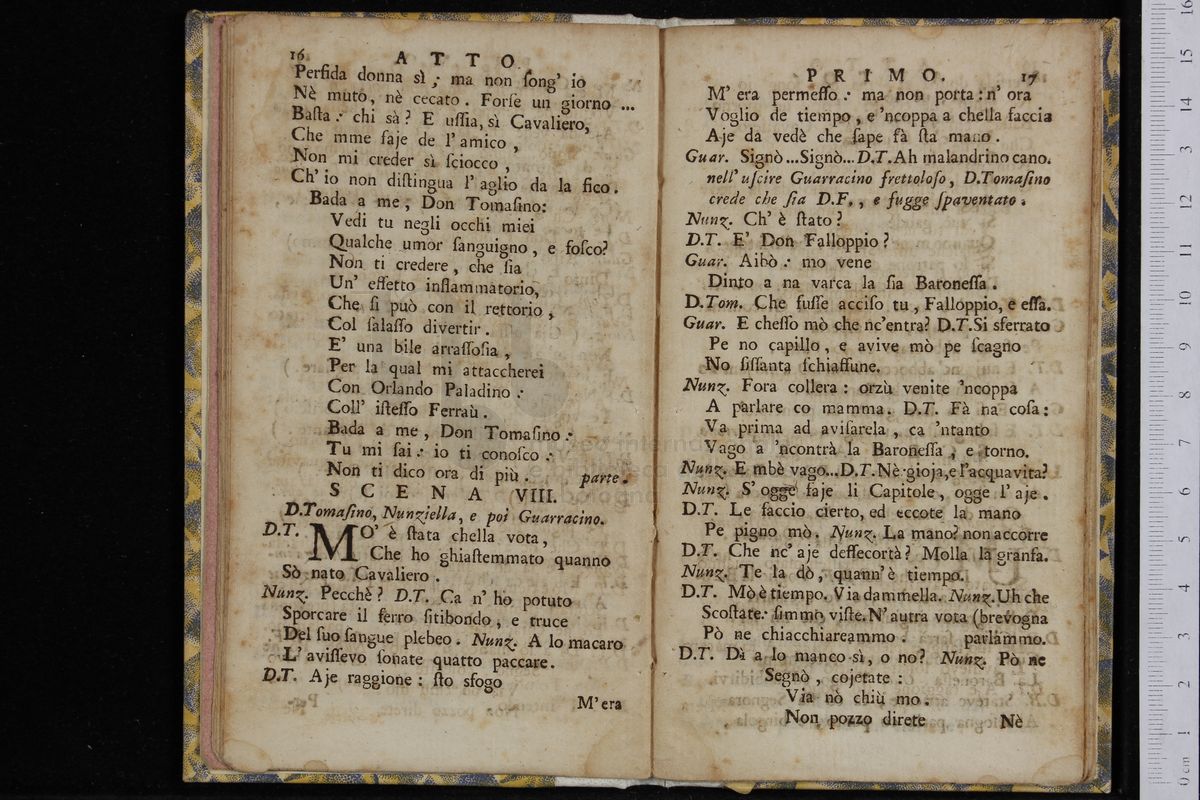 16 ATTO
Perfida donna sì; ma non ſong' io
Nè muto, nè cecato. Forſe un giorno ...
Baſta: chi sà? E uſſia, sì Cavaliero,
Che mme ſaje de l'amico,
Non mi creder sì ſciocco,
Ch'io non diſtingua l'aglio da la fico.
Bada a me, Don Tomaſino:
Vedi tu negli occhi miei
Qualche umor ſanguigno, e foſco?
Non ti credere, che ſia
Un' effetto inflammatorio,
Che ſi può con il rettorio,
Col ſalaſſo divertir.
E' una bile arraſſoſia,
Per la qual mi attaccherei
Con Orlando Paladino:
Coll' iſteſſo Ferraù.
Bada a me, Don Tomaſino:
Tu mi ſai: io ti conoſco:
Non ti dico ora di più. parte.
SCENA VIII.
D.Tomaſino, Nunziella, e poi Guarracino.
D.T. MO' è ſtata chella vota,
Che ho ghiaſtemmato quanno
Sò nato Cavaliero.
Nunz. Pecchè? D.T. Ca n' ho potuto
Sporcare il ferro ſitibondo, e truce
Del ſuo ſangue plebeo. Nunz. A lo macaro
L' aviſſevo ſonate quatto paccare.
D.T. Aje raggione: ſto sfogo
M'era
PRIMO. 17
M' era permeſſo: ma non porta: n' ora
Voglio de tiempo, e 'ncoppa a chella faccia
Aje da vedè che ſape fà ſta mano.
Guar. Signò...Signò... D.T. Ah malandrino cano.
nell' uſcire Guarracino frettoloſo, D.Tomaſino
crede che ſia D.F., e fugge ſpaventato.
Nunz. Ch' è ſtato?
D.T. E' Don Falloppio?
Guar. Aibò: mo vene
Dinto a na varca la ſia Baroneſſa.
D.Tom. Che fuſſe acciſo tu, Falloppio, e eſſa.
Guar. E cheſſo mò che nc'entra? D.T. Si sferrato
Pe no capillo, e avive mò pe ſcagno
No ſiſſanta ſchiaffune.
Nunz. Fora collera: orzù venite 'ncoppa
A parlare co mamma. D.T. Fà na coſa:
Va prima ad aviſarela, ca 'ntanto
Vago a 'ncontrà la Baroneſſa, e torno.
Nunz. E mbè vago...D.T. Nè gioja, e l'acquavita?
Nunz. S' ogge ſaje li Capitole, ogge l' aje.
D.T. Le faccio cierto, ed eccote la mano
Pe pigno mò. Nunz. La mano? non accorre
D.T. Che nc' aje deſſecortà? Molla la granfa.
Nunz. Te la dò, quann' è tiempo.
D.T. Mò è tiempo. Via dammella. Nunz. Uh che
Scoſtate: ſimmo viſte. N' autra vota (brevogna
Pò ne chiacchiareammo. parlammo.
D.T. Dì a lo manco sì, o no? Nunz. Pò ne
Segnò, cojetate:
Via nò chiù mo.
Non pozzo direte
Nè